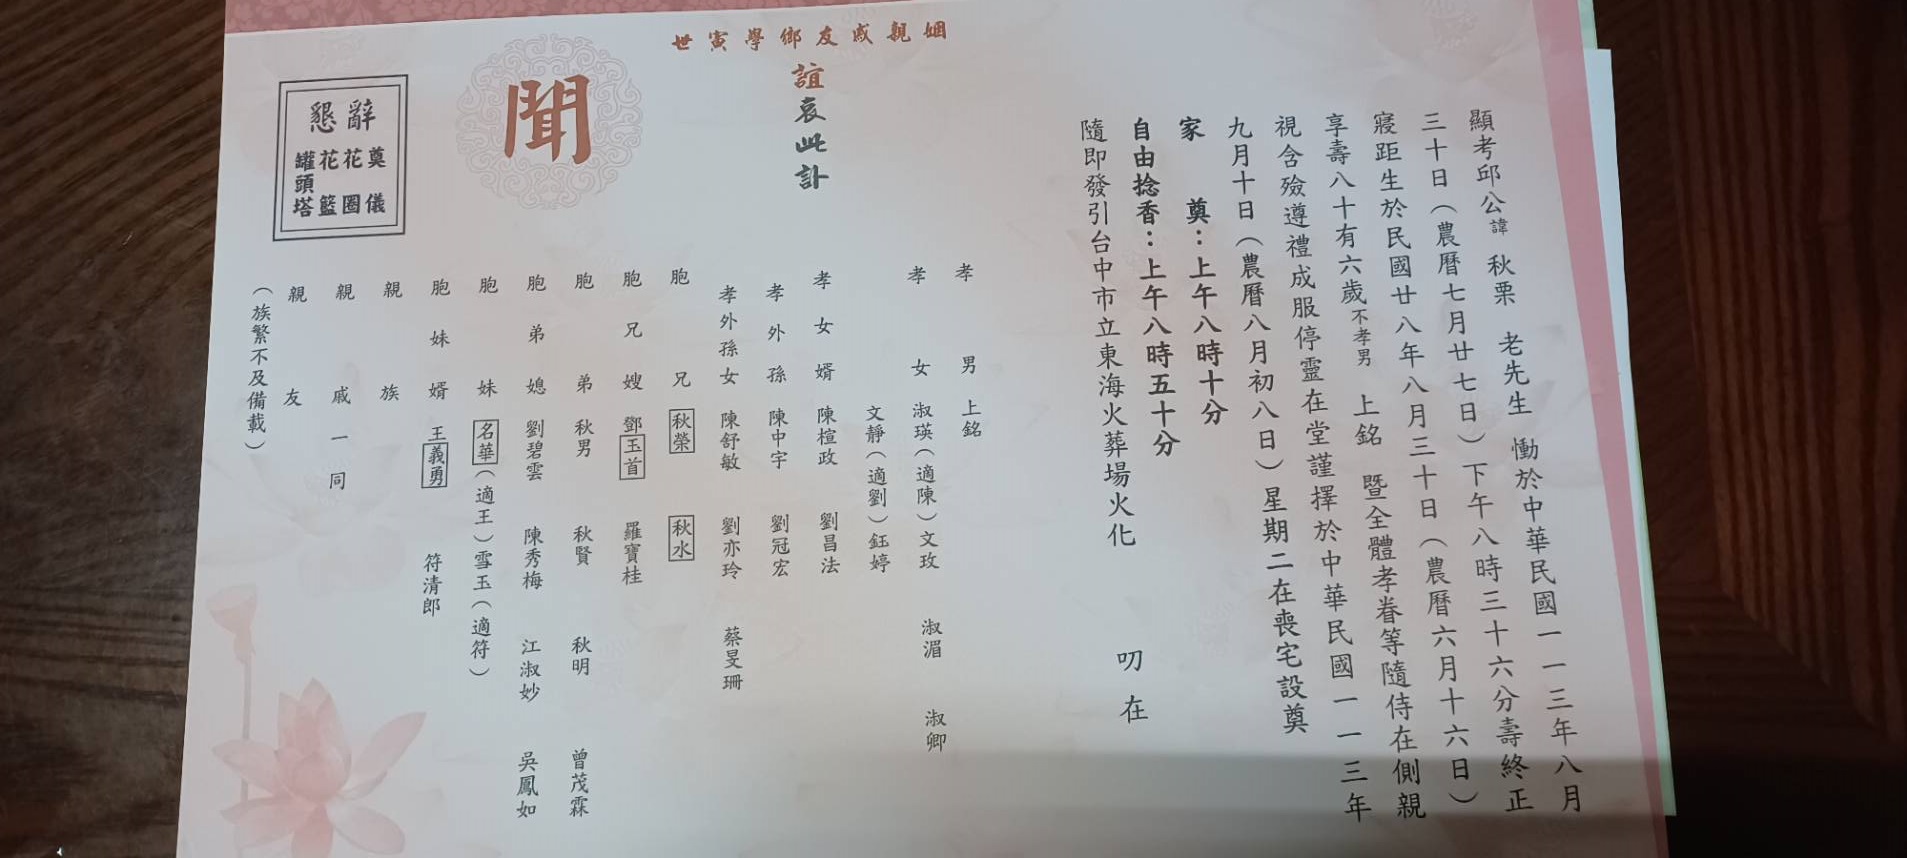 顯考邱公諱秋栗老先生慟於中華民國一一三年八月
三十日（農曆七月廿七日）下午八時三十六分壽終正
寢距生於民國廿八年八月三十日（農曆六月十六日）
享壽八十有六歲不孝男上銘暨全體孝眷等隨侍在側親
視含殮遵禮成服停靈在堂謹擇於中華民國一一三年
九月十日（農曆八月初八日）星期二在喪宅設奠
家　奠：上午八時十分
自由捻香：上午八時五十分
隨即發引台中市立東海火葬場火化
叨在
姻親戚友鄉學寅世
誼哀此訃
聞
孝男　上銘
孝女　淑瑛（適陳）文玫　淑湄　淑卿
文靜（適劉）鈺婷
孝女婿　陳楦政　劉昌法
孝外孫　陳中宇　劉冠宏
孝外孫女　陳舒敏　劉亦玲　蔡旻珊
胞兄　秋榮　秋水
胞兄嫂　鄧玉首　羅寶桂
胞弟　秋男　秋賢　秋明　曾茂霖
胞弟媳　劉碧雲　陳秀梅　江淑妙　吳鳳如
胞妹　名華（適王）雪玉（適符）
胞妹婿　王義勇　符清郎
親族
親戚一同
親友
（族繁不及備載）
懇辭
奠儀
花圈
花籃
罐頭塔